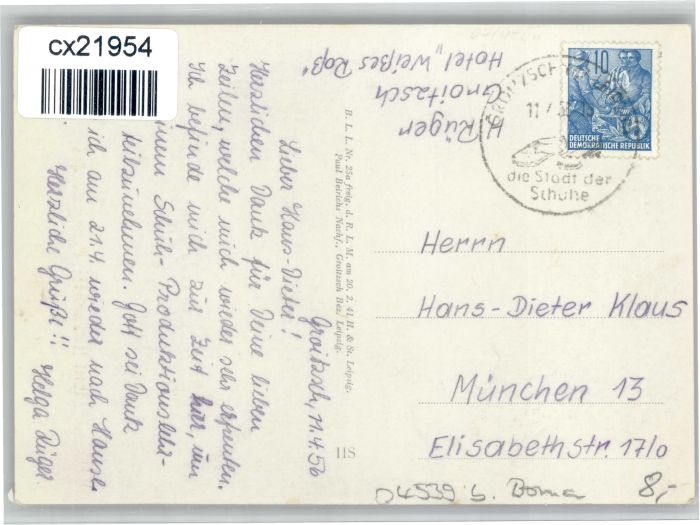 cx21954
H. Rüger
Groitzsch
Hotel „Weißes Roß"
Groitzsch, 11.4.56
Lieber Hans-Dieter!
Herzlichen Dank für Deine lieben
Zeilen, welche mich wieder sehr erfreuten.
Ich befinde mich zur Zeit hier, um
einem Schuh-Produktions
teilzunehmen. Gott sei Dank
ich am 21.4. wieder nach Hause.
Herzliche Grüße!! Helga Rüger
B. L. L. Nr. 25a freig. d. R. L. M. am 20. 2. 41 H. & St. Leipzig.
Paul Beirichs Nachf., Groitzsch Bez. Leipzig.
IIS
10
DEUTSCHE
DEMOKRATISCHE REPUBLIK
die Stadt der
Schuhe
Herrn
Hans-Dieter Klaus
München 13
Elisabethstr. 17/0
04539 b. Borna
8,-